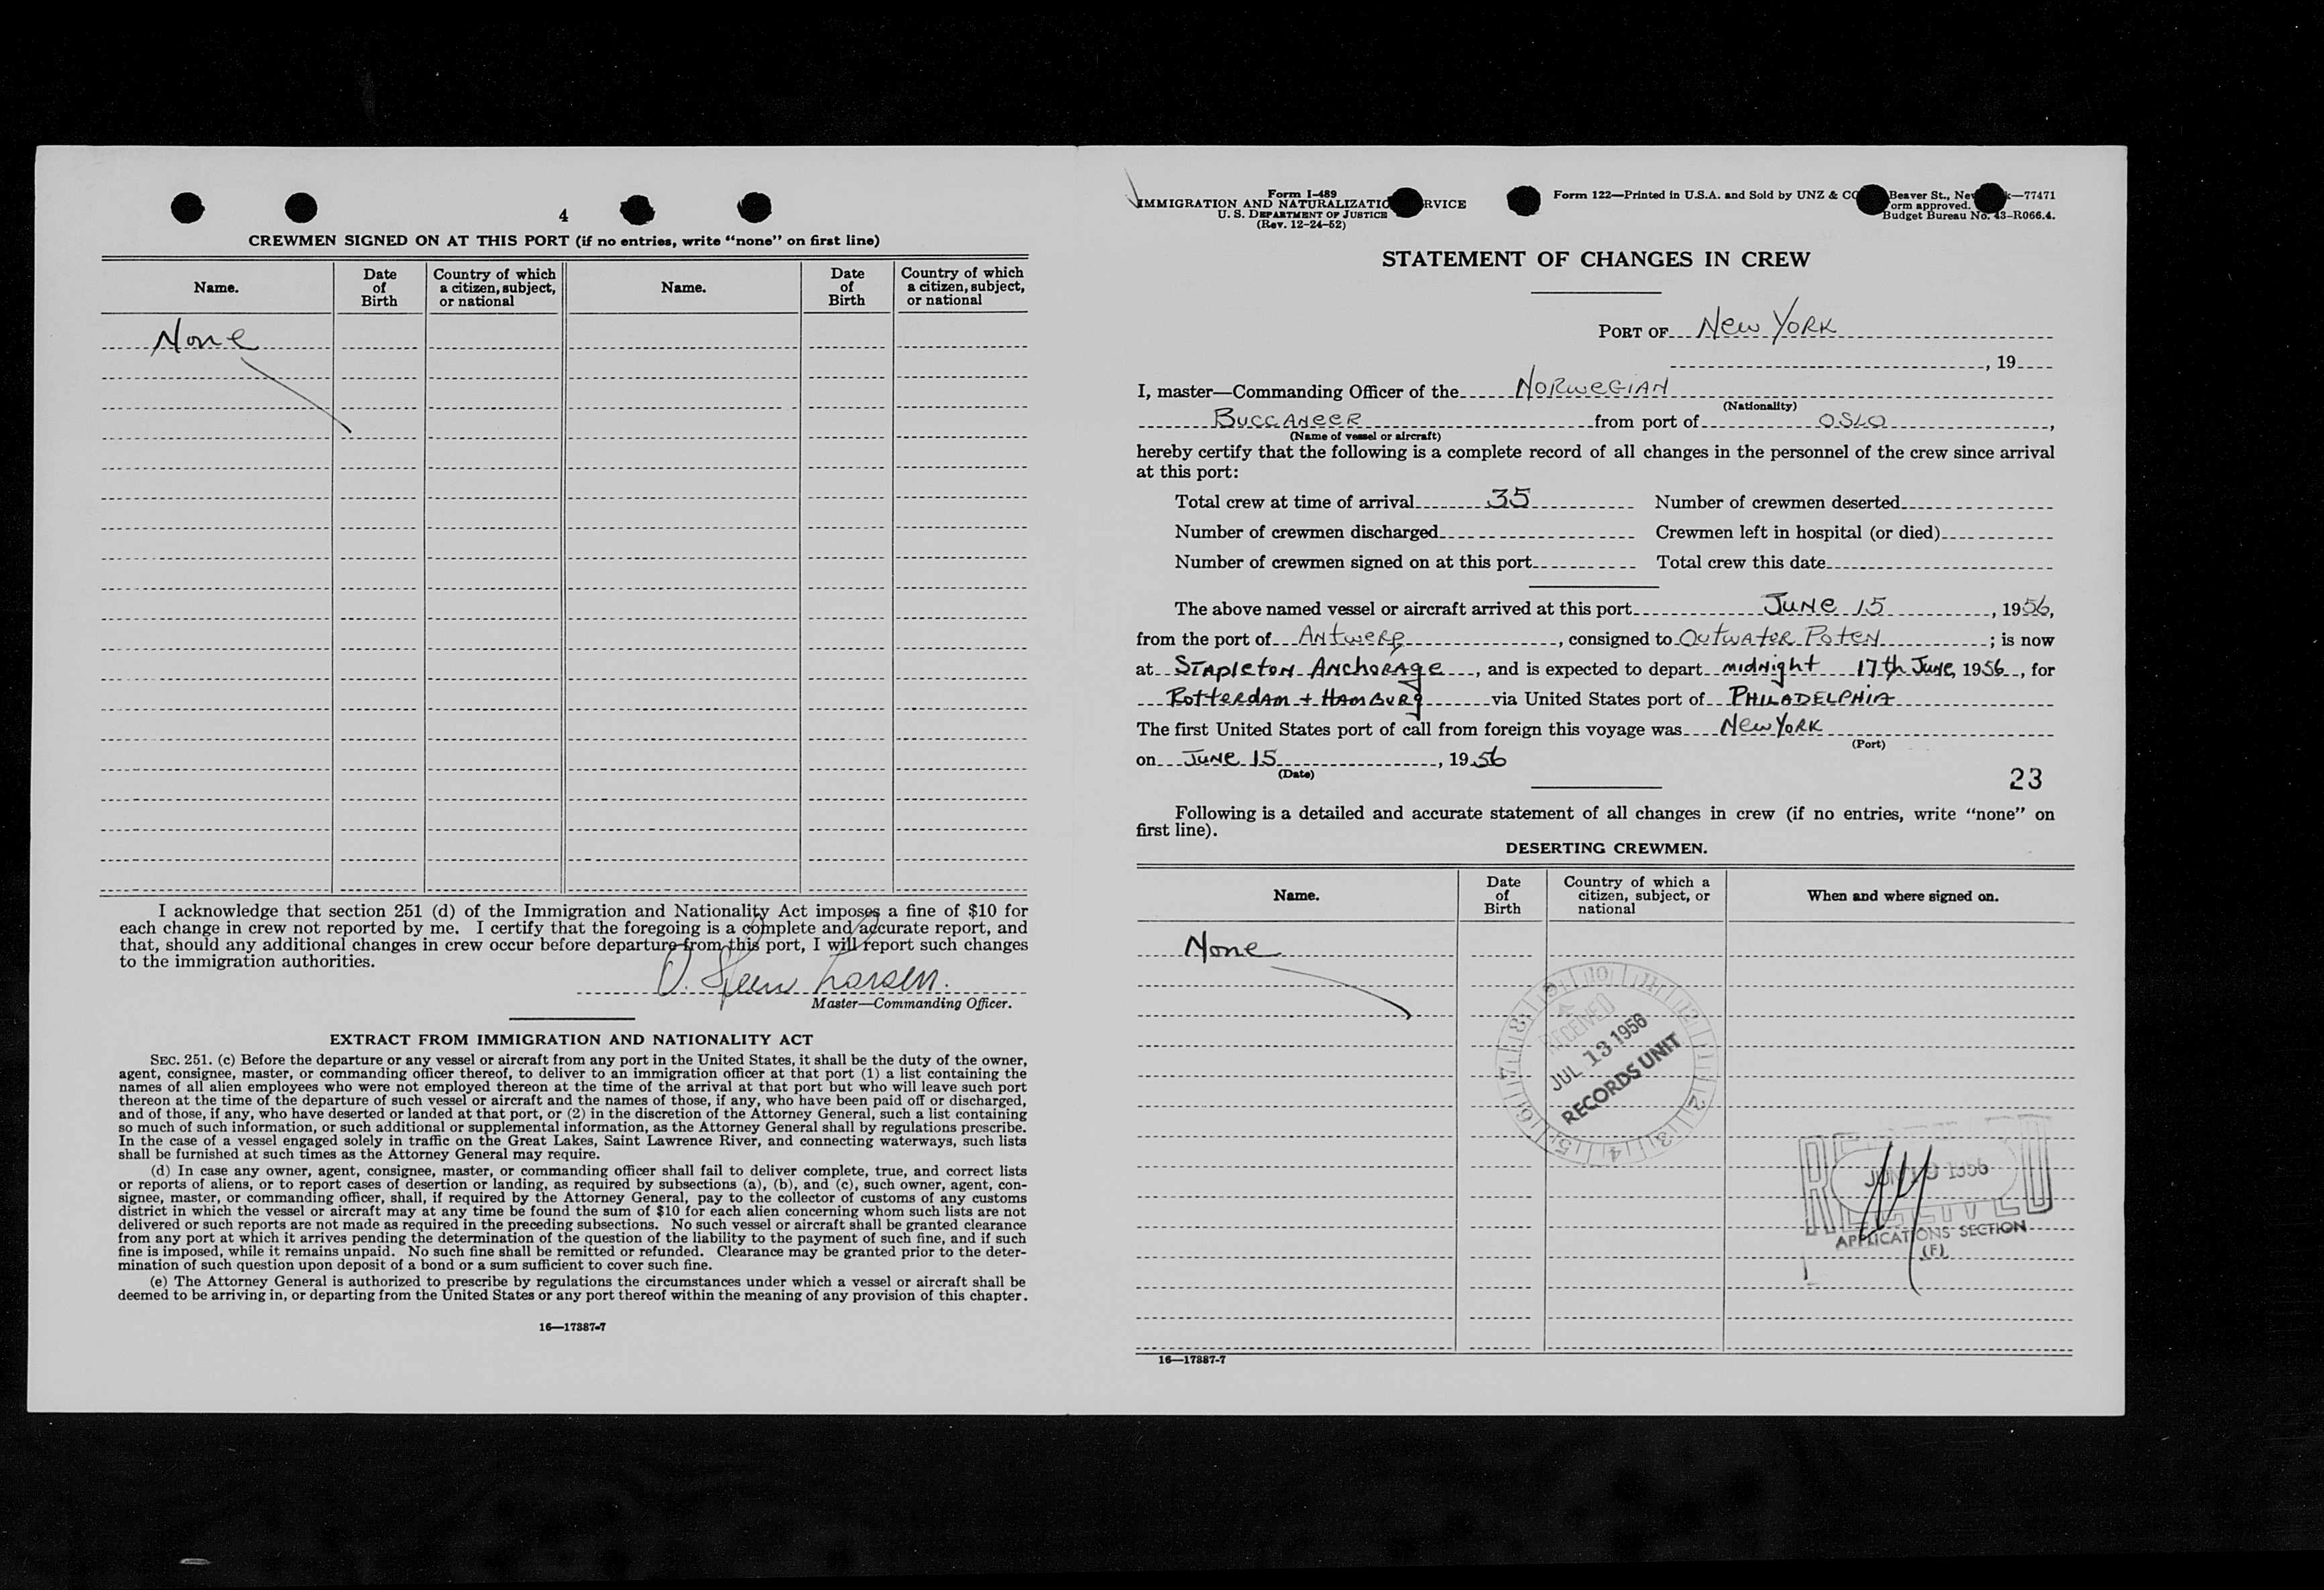 4
CREWMEN SIGNED ON AT THIS PORT (if no entries, write “none” on first line)
Name. Date of Birth Country of which a citizen, subject, or national Name. Date of Birth Country of which a citizen, subject, or national
None
I acknowledge that section 251 (d) of the Immigration and Nationality Act imposes a fine of $10 for
each change in crew not reported by me. I certify that the foregoing is a complete and accurate report, and
that, should any additional changes in crew occur before departure from this port, I will report such changes
to the immigration authorities.
O. Steen Larsen.
Master—Commanding Officer.
EXTRACT FROM IMMIGRATION AND NATIONALITY ACT
SEC. 251. (c) Before the departure or any vessel or aircraft from any port in the United States, it shall be the duty of the owner,
agent, consignee, master, or commanding officer thereof, to deliver to an immigration officer at that port (1) a list containing the
names of all alien employees who were not employed thereon at the time of the arrival at that port but who will leave such port
thereon at the time of the departure of such vessel or aircraft and the names of those, if any, who have been paid off or discharged,
and of those, if any, who have deserted or landed at that port, or (2) in the discretion of the Attorney General, such a list containing
so much of such information, or such additional or supplemental information, as the Attorney General shall by regulations prescribe.
In the case of a vessel engaged solely in traffic on the Great Lakes, Saint Lawrence River, and connecting waterways, such lists
shall be furnished at such times as the Attorney General may require.
(d) In case any owner, agent, consignee, master, or commanding officer shall fail to deliver complete, true, and correct lists
or reports of aliens, or to report cases of desertion or landing, as required by subsections (a), (b), and (c), such owner, agent, con-
signee, master, or commanding officer, shall, if required by the Attorney General, pay to the collector of customs of any customs
district in which the vessel or aircraft may at any time be found the sum of $10 for each alien concerning whom such lists are not
delivered or such reports are not made as required in the preceding subsections. No such vessel or aircraft shall be granted clearance
from any port at which it arrives pending the determination of the question of the liability to the payment of such fine, and if such
fine is imposed, while it remains unpaid. No such fine shall be remitted or refunded. Clearance may be granted prior to the deter-
mination of such question upon deposit of a bond or a sum sufficient to cover such fine.
(e) The Attorney General is authorized to prescribe by regulations the circumstances under which a vessel or aircraft shall be
deemed to be arriving in, or departing from the United States or any port thereof within the meaning of any provision of this chapter.
16—17887-7
Form I-489
IMMIGRATION AND NATURALIZATIO RVICE
U. S. DEPARTMENT OF JUSTICE
(Rev. 12-24-52)
Form 122—Printed in U.S.A. and Sold by UNZ & CO Beaver St., New k—77471
orm approved.
Budget Bureau No. 43-R066.4.
STATEMENT OF CHANGES IN CREW
PORT OF New York
, 19
I, master—Commanding Officer of the NORWEGIAN
(Nationality)
BUCCANEER from port of OSLO,
(Name of vessel or aircraft)
hereby certify that the following is a complete record of all changes in the personnel of the crew since arrival
at this port:
Total crew at time of arrival 35 Number of crewmen deserted
Number of crewmen discharged Crewmen left in hospital (or died)
Number of crewmen signed on at this port Total crew this date
The above named vessel or aircraft arrived at this port June 15, 1956,
from the port of Antwerp, consigned to Outwater Poten; is now
at Stapleton Anchorage, and is expected to depart midnight 17th June, 1956, for
Rotterdam + Hamburg via United States port of PHILADELPHIA
The first United States port of call from foreign this voyage was New York
(Port)
on June 15, 1956
(Date)
23
Following is a detailed and accurate statement of all changes in crew (if no entries, write “none” on
first line).
DESERTING CREWMEN.
Name. Date of Birth Country of which a citizen, subject, or national When and where signed on.
None
RECEIVED
JUL 13 1956
RECORDS UNIT
RECEIVED
JUN 19 1956
APPLICATIONS SECTION
(F)
16—17887-7